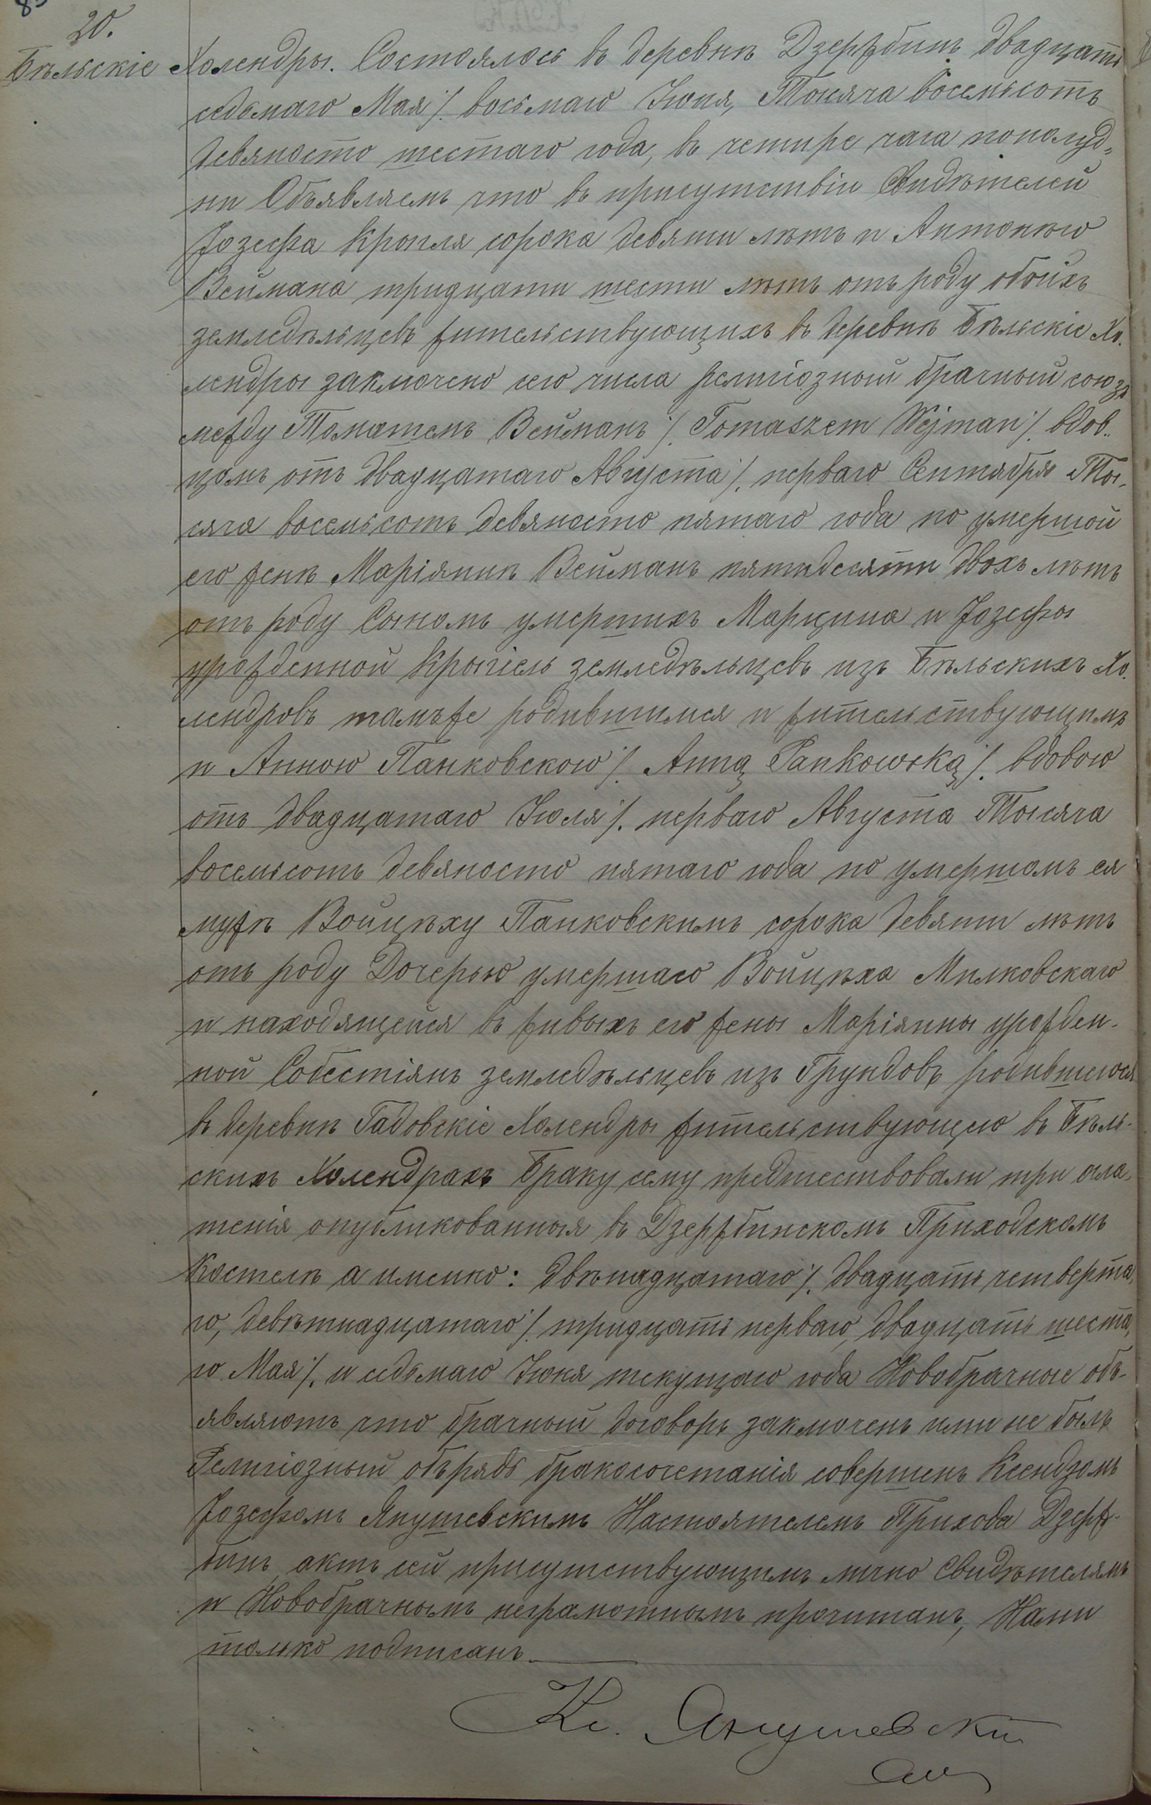 20.
Бѣльскіе Холендры. Состоялось въ деревнѣ Дзержбинъ двадцать
седьмаго Мая ./. восьмаго Іюня, Тысяча восемьсотъ
девяносто шестаго года, въ четыре часа пополуд-
ни Объявляемъ что въ присутствіи Свидѣтелей
Іозефа Кроля сорока девяти лѣтъ и Антонію
Веймана тридцати шести лѣтъ отъ роду обоихъ
земледѣльцевъ жительствующихъ въ деревнѣ Бѣльскіе Хо.
лендры заключено сего числа религіозный брачный союзъ
между Томашемъ Вейманъ ./. Tomaszem Wejman ./. вдов-
цомъ отъ двадцатаго Августа ./. перваго Сентября Ты-
сяча восемьсотъ девяносто пятаго года по умершой
его женѣ Маріяннѣ Вейманъ пятидесяти двохъ лѣтъ
отъ роду Сыномъ умершихъ Марцина и Іозефы
урожденной Крыгіель земледѣльцевъ изъ Бѣльскихъ Хо.
лендровъ тамъже родившимся и жительствующимъ
и Анною Панковскою ./. Anną Pankowską ./. вдовою
отъ двадцатаго Іюля ./. перваго Августа Тысяча
восемьсотъ девяносто пятаго года по умершомъ ея
мужѣ Войцѣху Панковскимъ сорока девяти лѣтъ
отъ роду Дочерью умершаго Войцѣха Милковскаго
и находящейся въ живыхъ его жены Маріянны урожден-
ной Собестіянъ земледѣльцевъ изъ Грундовъ родившеюся
въ деревнѣ Гадовскіе Холендры жительствующею въ Бѣль-
скихъ Холендрахъ Браку сему предшествовали три огла-
шенія опубликованныя въ Дзержбинскомъ Приходскомъ
Костелѣ а именно: двѣнадцатаго ./. двадцать четверта-
го, девѣтнадцатаго ./. тридцать перваго, двадцать шеста-
го Мая ./. и седьмаго Іюня текущаго года Новобрачные объ-
являютъ что брачный договоръ заключенъ ими не былъ
Религіозный обрядъ бракосочетанія совершенъ Ксендзомъ
Іозефомъ Янушевскимъ Настоятелемъ Прихода Дзерж-
бинъ, актъ сей присутствующимъ лично Свидѣтелямъ
и Новобрачнымъ неграмотнымъ прочитанъ, Нами
только подписанъ.
Кс. Янушевскій